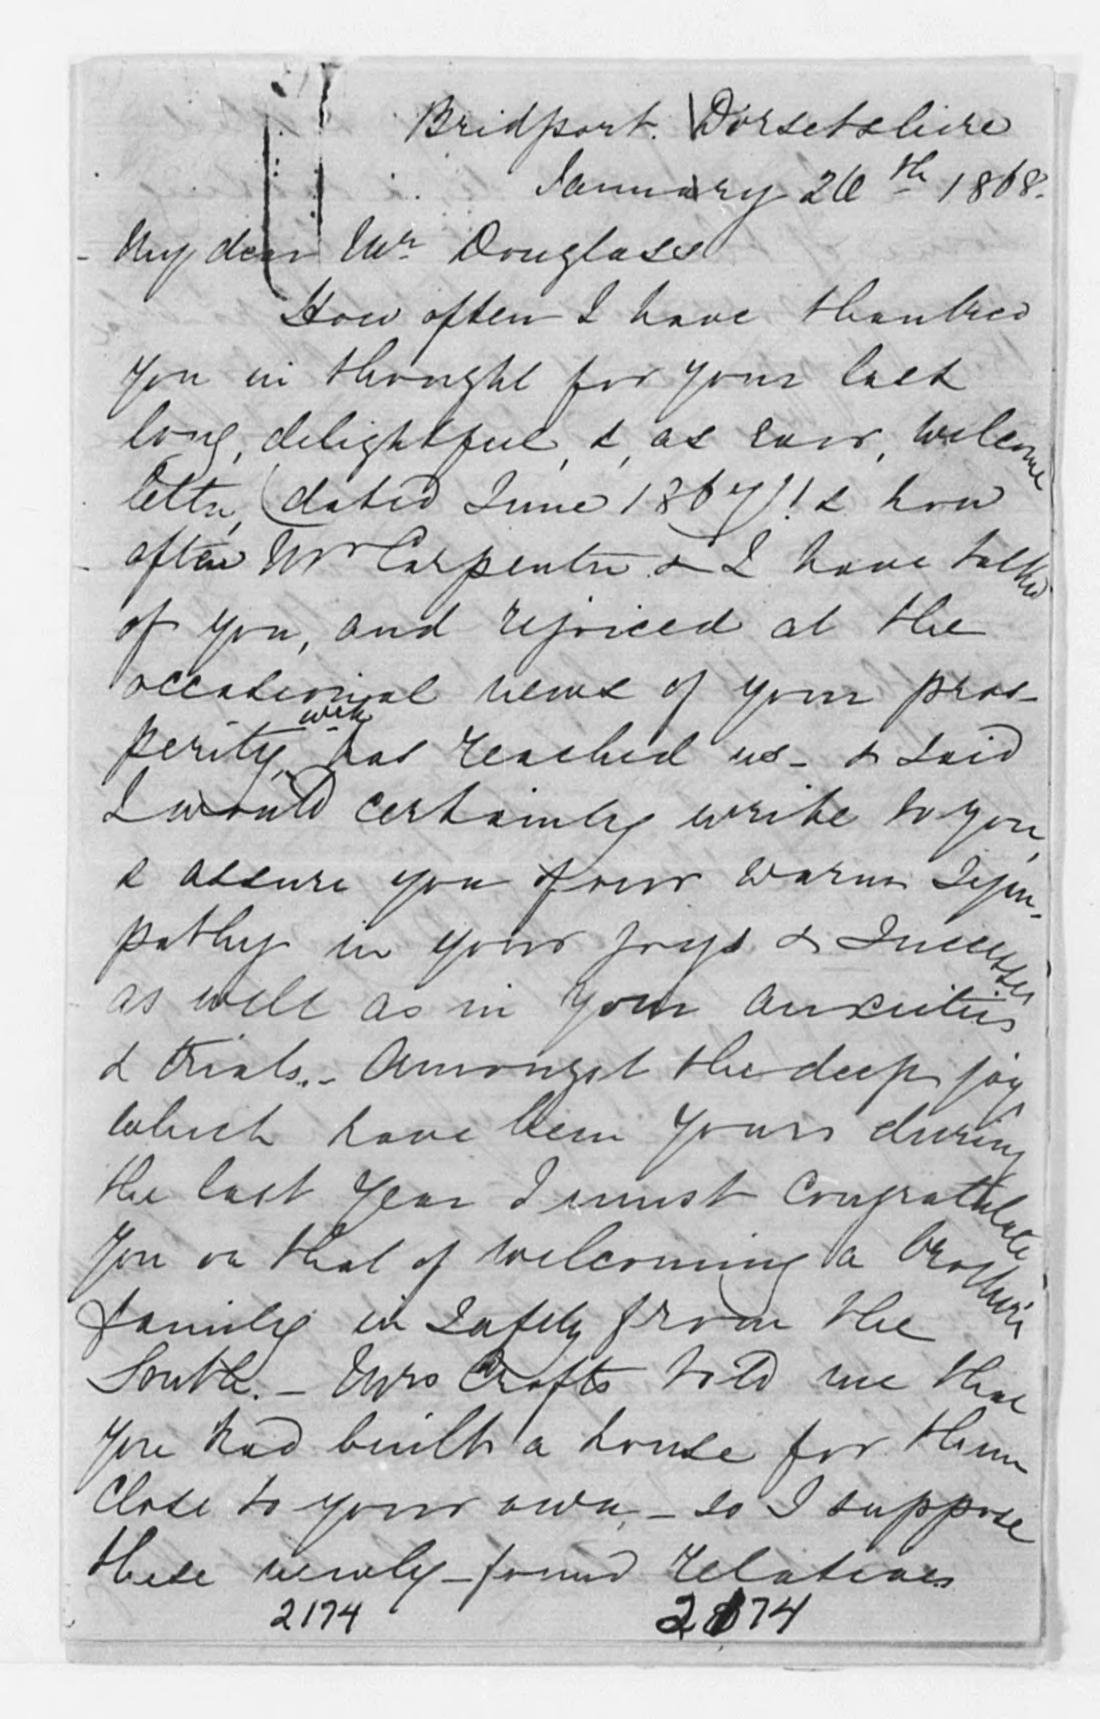 Bridport. Dorsetshire
January 20th 1868.
My dear Mr Douglass
How often I have thanked
you in thought for your last
long, delightful, &, as ever, welcome
letter, (dated June 1867)! & how
often Mr Carpenter & I have talked
of you, and rejoiced at the
occasional news of your pros-
perity, wch has reached us - & said
I would certainly write to you,
& assure you of our warm Sym-
pathy in your joys & Successes
as well as in your anxieties
& trials. - Amongst the deep joy
which have been yours during
the last year I must congratulate
you on that of welcoming a brother's
family in Safety from the
South. - Mrs Crafts told me that
you had built a house for them
close to your own, - so I suppose
these newly-found relatives
2174 2174